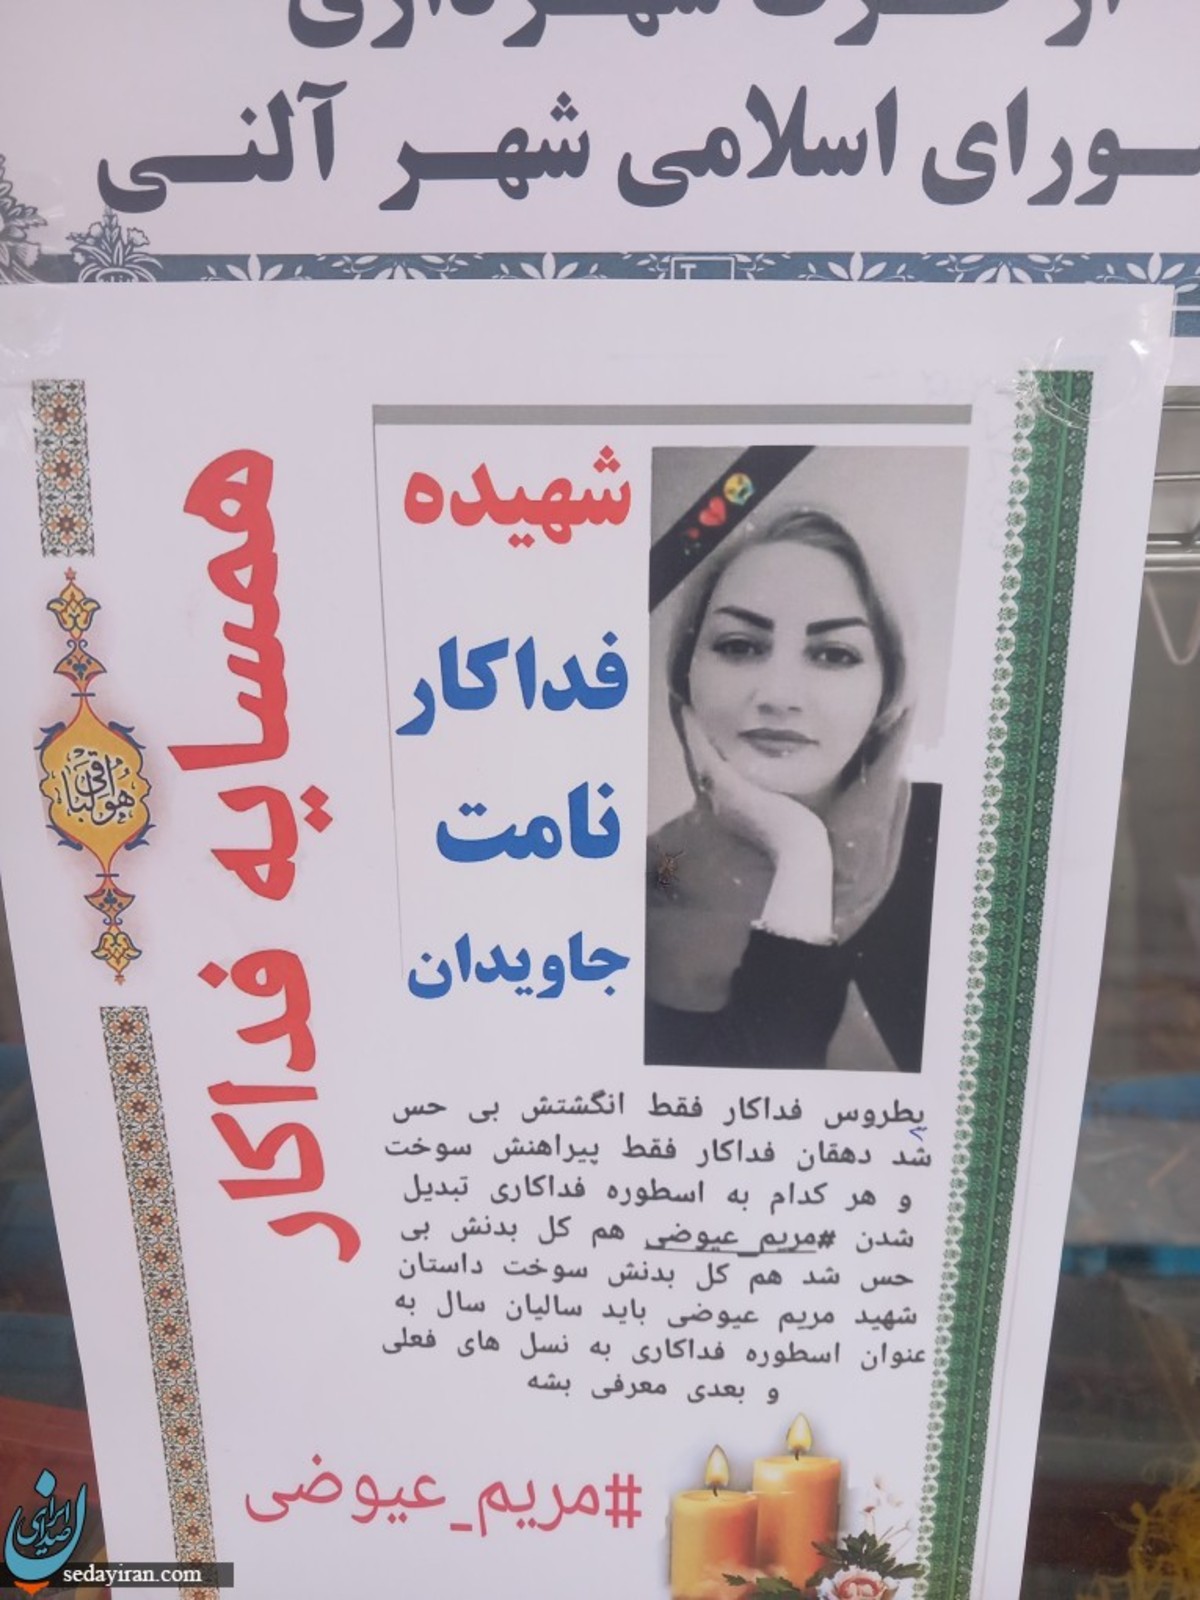 از طرف شهرداری
ورای اسلامی شهر آلنی
شهیده
فداکار
نامت
جاویدان
همسایه فداکار
هوالباقی
پطروس فداکار فقط انگشتش بی حس
شد دهقان فداکار فقط پیراهنش سوخت
و هر کدام به اسطوره فداکاری تبدیل
شدن #مریم_عیوضی هم کل بدنش بی
حس شد هم کل بدنش سوخت داستان
شهید مریم عیوضی باید سالیان سال به
عنوان اسطوره فداکاری به نسل های فعلی
و بعدی معرفی بشه
#مریم_عیوضی
صدای ایران
sedayiran.com